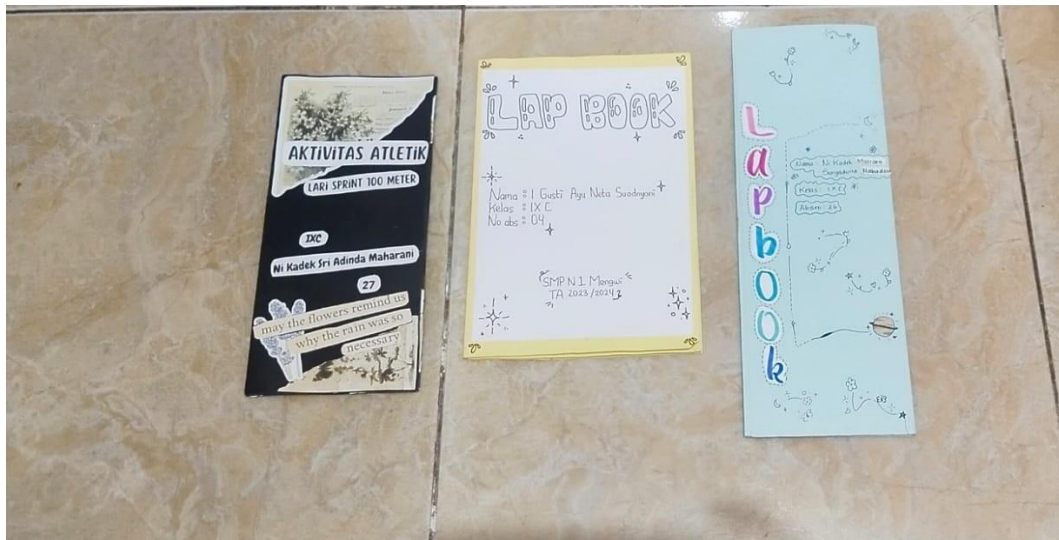 AKTIVITAS ATLETIK
LARI SPRINT 100 METER
IXC
Ni Kadek Sri Adinda Maharani
27
may the flowers remind us
why the rain was so
necessary
LAP BOOK
Nama : I Gusti Ayu Neta
Kelas : IX C
No abs : 04
SMP N 1 Mengwi
TA 2023/2024
Lapbook
Nama : Ni Kadek
Kelas : IX C
Absen : 26